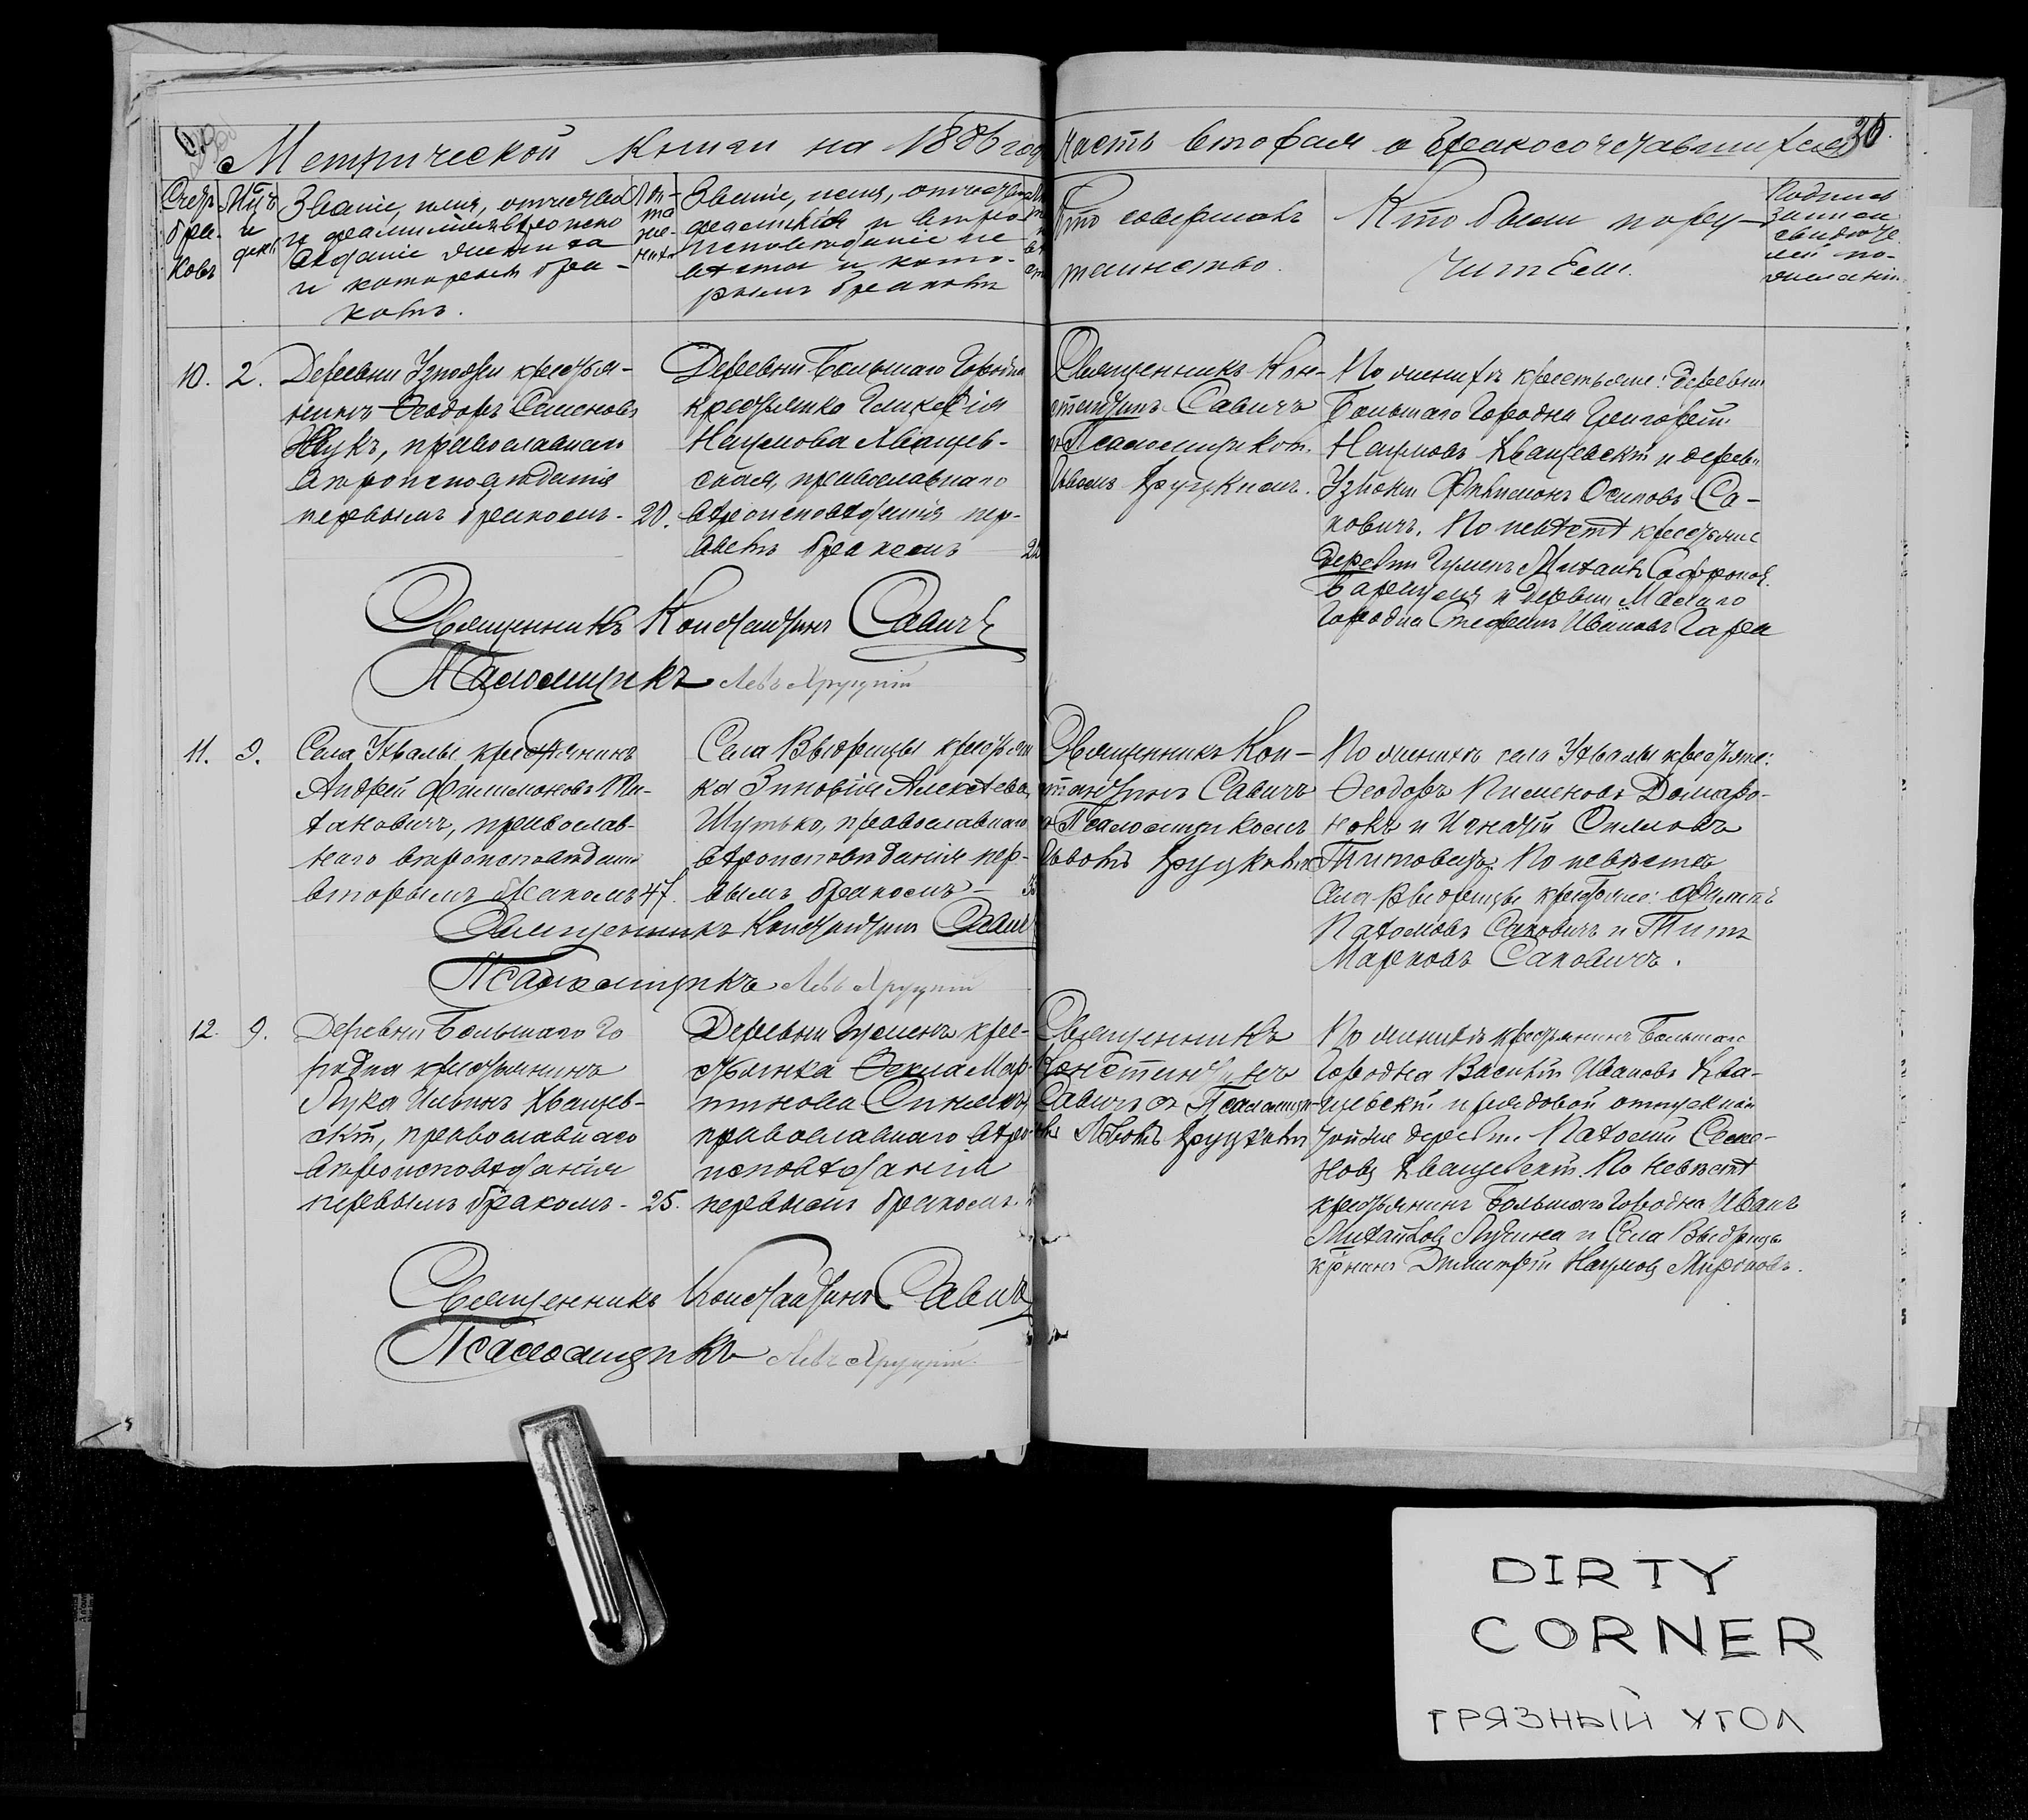 Метрической Книги на 1886 год
Часть вторая о бракосочетавшихся
30.
Счетъ
бра-
ковъ
и
день
Званіе, имя, отчество
и фамилія и вѣроиспо
вѣданіе жениха
и которымъ бра-
комъ.
Званіе, имя, отчество
фамилія и вѣро
исповѣданіе не
вѣсты и кото-
рымъ бракомъ
Кто совершалъ
таинство.
Кто были пору-
чители.
Подпись
записи
свидѣте
лей по-
желанію
10. 2.
Деревни крестья-
нинъ Ѳеодоръ Семеновъ
православнаго
вѣроисповѣданія
первымъ бракомъ. 20.
Деревни Большаго Городна
крестьянка Гликерія
Наумова Хващев-
ская, православнаго
вѣроисповѣданія пер-
вымъ бракомъ
Священникъ Кон-
стантинъ Савичъ
съ Псаломщикомъ
Львомъ Хруцкимъ.
По женихѣ крестьяне: деревни
Большаго Городна Григорій
Наумовъ Хващевскій и дерев.
Филимонъ Осиповъ Са-
ковичъ. По невѣстѣ крестьяне
Деревни Гуменъ Михаилъ Софроновъ
и деревни Малаго
Городна Стефанъ Ивановъ
Священникъ Константинъ Савичъ
Псаломщикъ Левъ Хруцкій
11. 9.
Села Ухвалы крестьянинъ
Андрей Филимоновъ Пи-
православ-
наго вѣроисповѣданія
вторымъ бракомъ 47.
Села Выдрицы крестьян
ка Зиновія Алексѣева
Шутько, православнаго
вѣроисповѣданія пер-
вымъ бракомъ-
Священникъ Кон-
стантинъ Савичъ
съ Псаломщикомъ
Львомъ Хруцкимъ
По женихѣ села Ухвалы крестьяне:
Ѳеодоръ Пименовъ Домаро-
нокъ и Игнатій
Титовецъ. По невѣстѣ
Села Выдрицы крестьяне: Филиппъ
Пахомовъ Саковичъ и Титъ
Марковъ Саковичъ.
Священникъ Константинъ Савичъ
Псаломщикъ Левъ Хруцкій
12. 9.
Деревни Большаго Го
родна крестьянинъ
Лука Ильинъ Хващев-
скій, православнаго
вѣроисповѣданія
первымъ бракомъ. 25.
Деревни Гуменъ кре-
стьянка Ѳекла Мар-
тинова
православнаго вѣро-
исповѣданія
первымъ бракомъ.
Священникъ
Константинъ
Савичъ съ Псаломщи-
Львомъ Хруцкимъ
По женихѣ крестьянинъ Большаго
Городна Василій Ивановъ Хва-
щевскій и рядовой отпускной
деревни Пахомій Семе-
новъ Хващевскій. По невѣстѣ
крестьянинъ Большаго Городна Иванъ
Михайловъ Лучина и Села Выдрицы
Димитрій Наумовъ Мироновъ.
Священникъ Константинъ Савичъ
Псаломщикъ Левъ Хруцкій.
DIRTY
CORNER
ГРЯЗНЫЙ УГОЛ